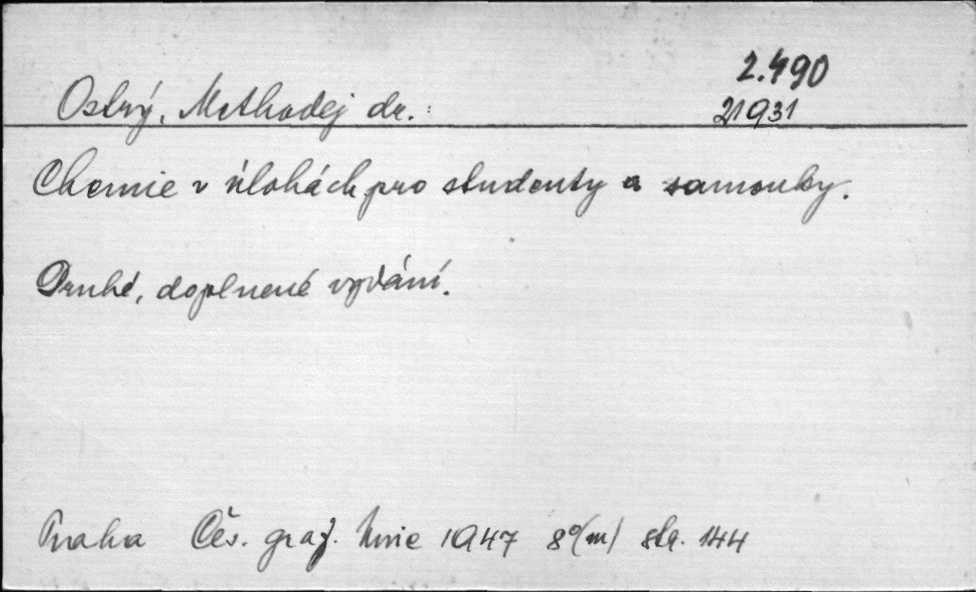 2.490
Ostrý, Methoděj dr.:
21931
Chemie v úlohách pro studenty a samouky.
Druhé, doplnené vydání.
Praha Čes. graf. Unie 1947 8°(m) str. 144